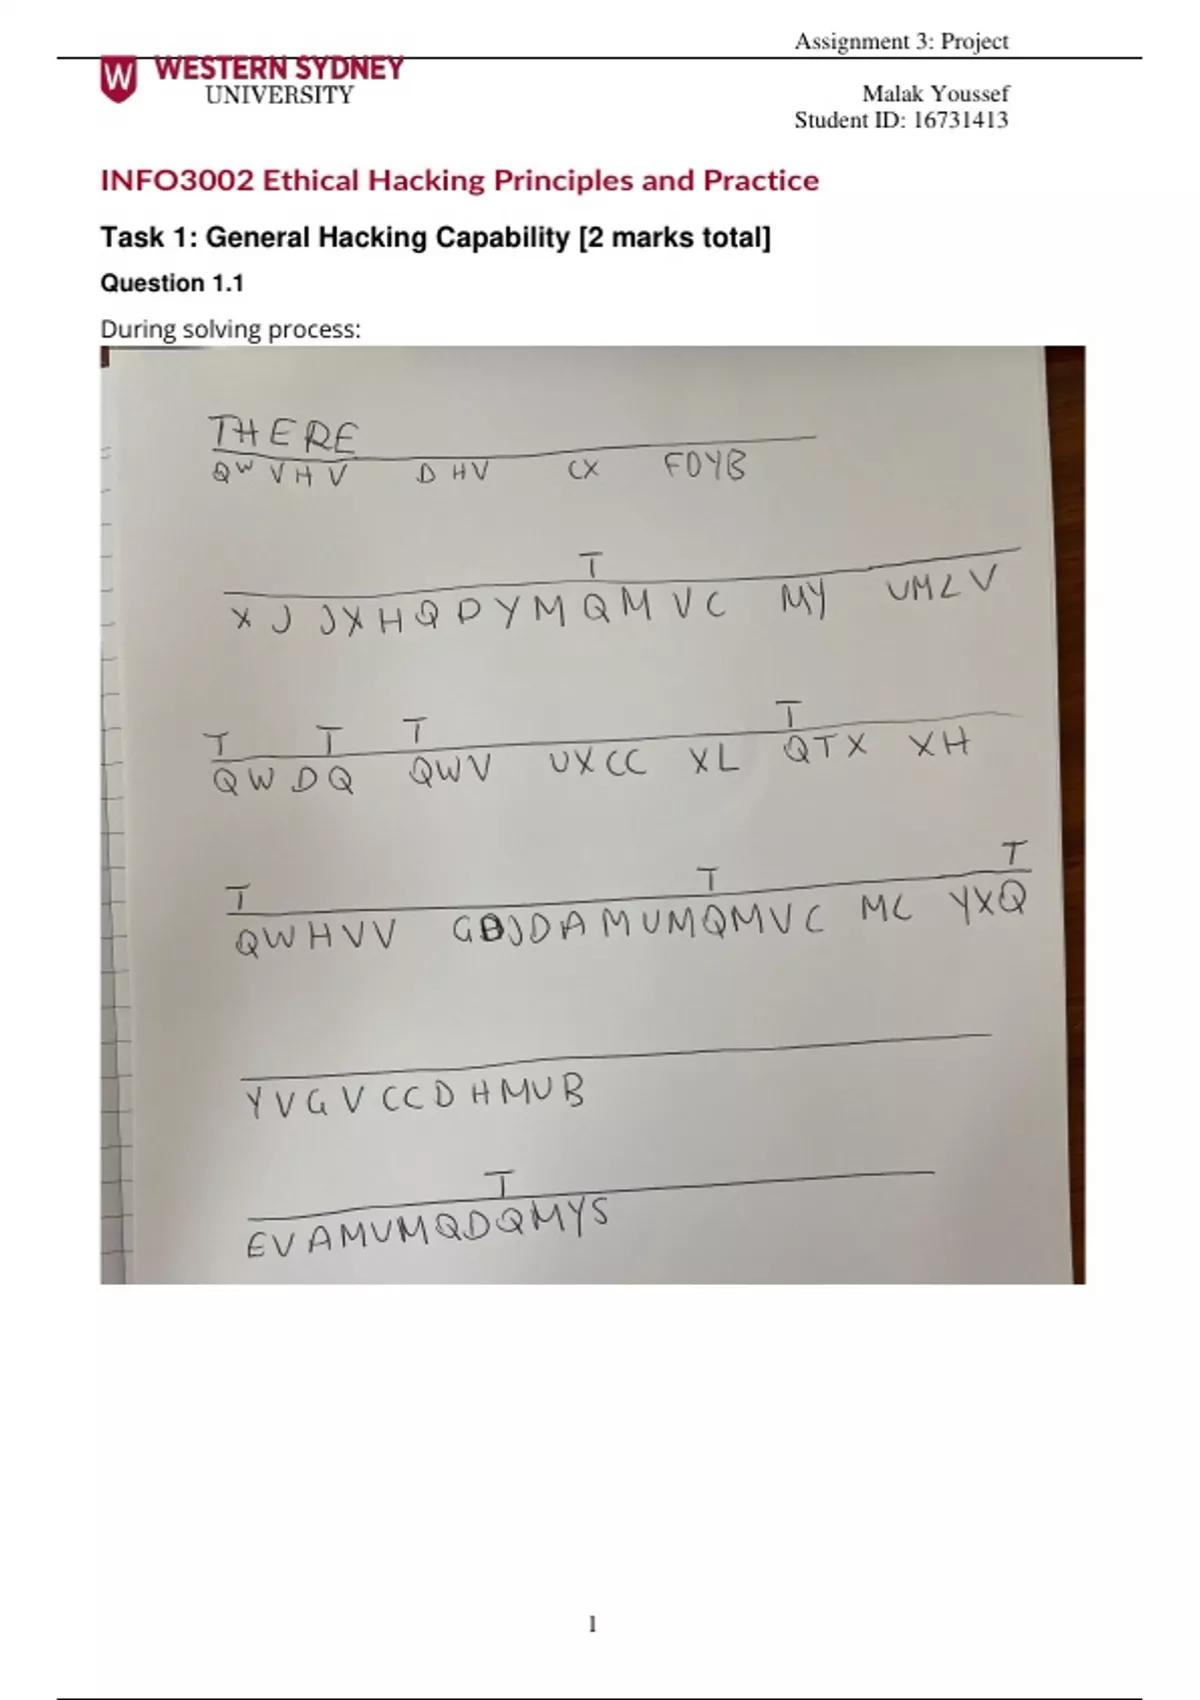 Assignment 3: Project
WESTERN SYDNEY
UNIVERSITY
Malak Youssef
Student ID: 16731413
INFO3002 Ethical Hacking Principles and Practice
Task 1: General Hacking Capability [2 marks total]
Question 1.1
During solving process:
THERE
QWVHV DHV CX FDYB
T
XJ JXHQDYMQMVC MY UMLV
T T T T
QWDQ QWV UXCC XL QTX XH
T T T
QWHVV GBJDAMUMQMVC MC YXQ
YVGVCCDHMUB
T
EVAMUMQDQMYS
1